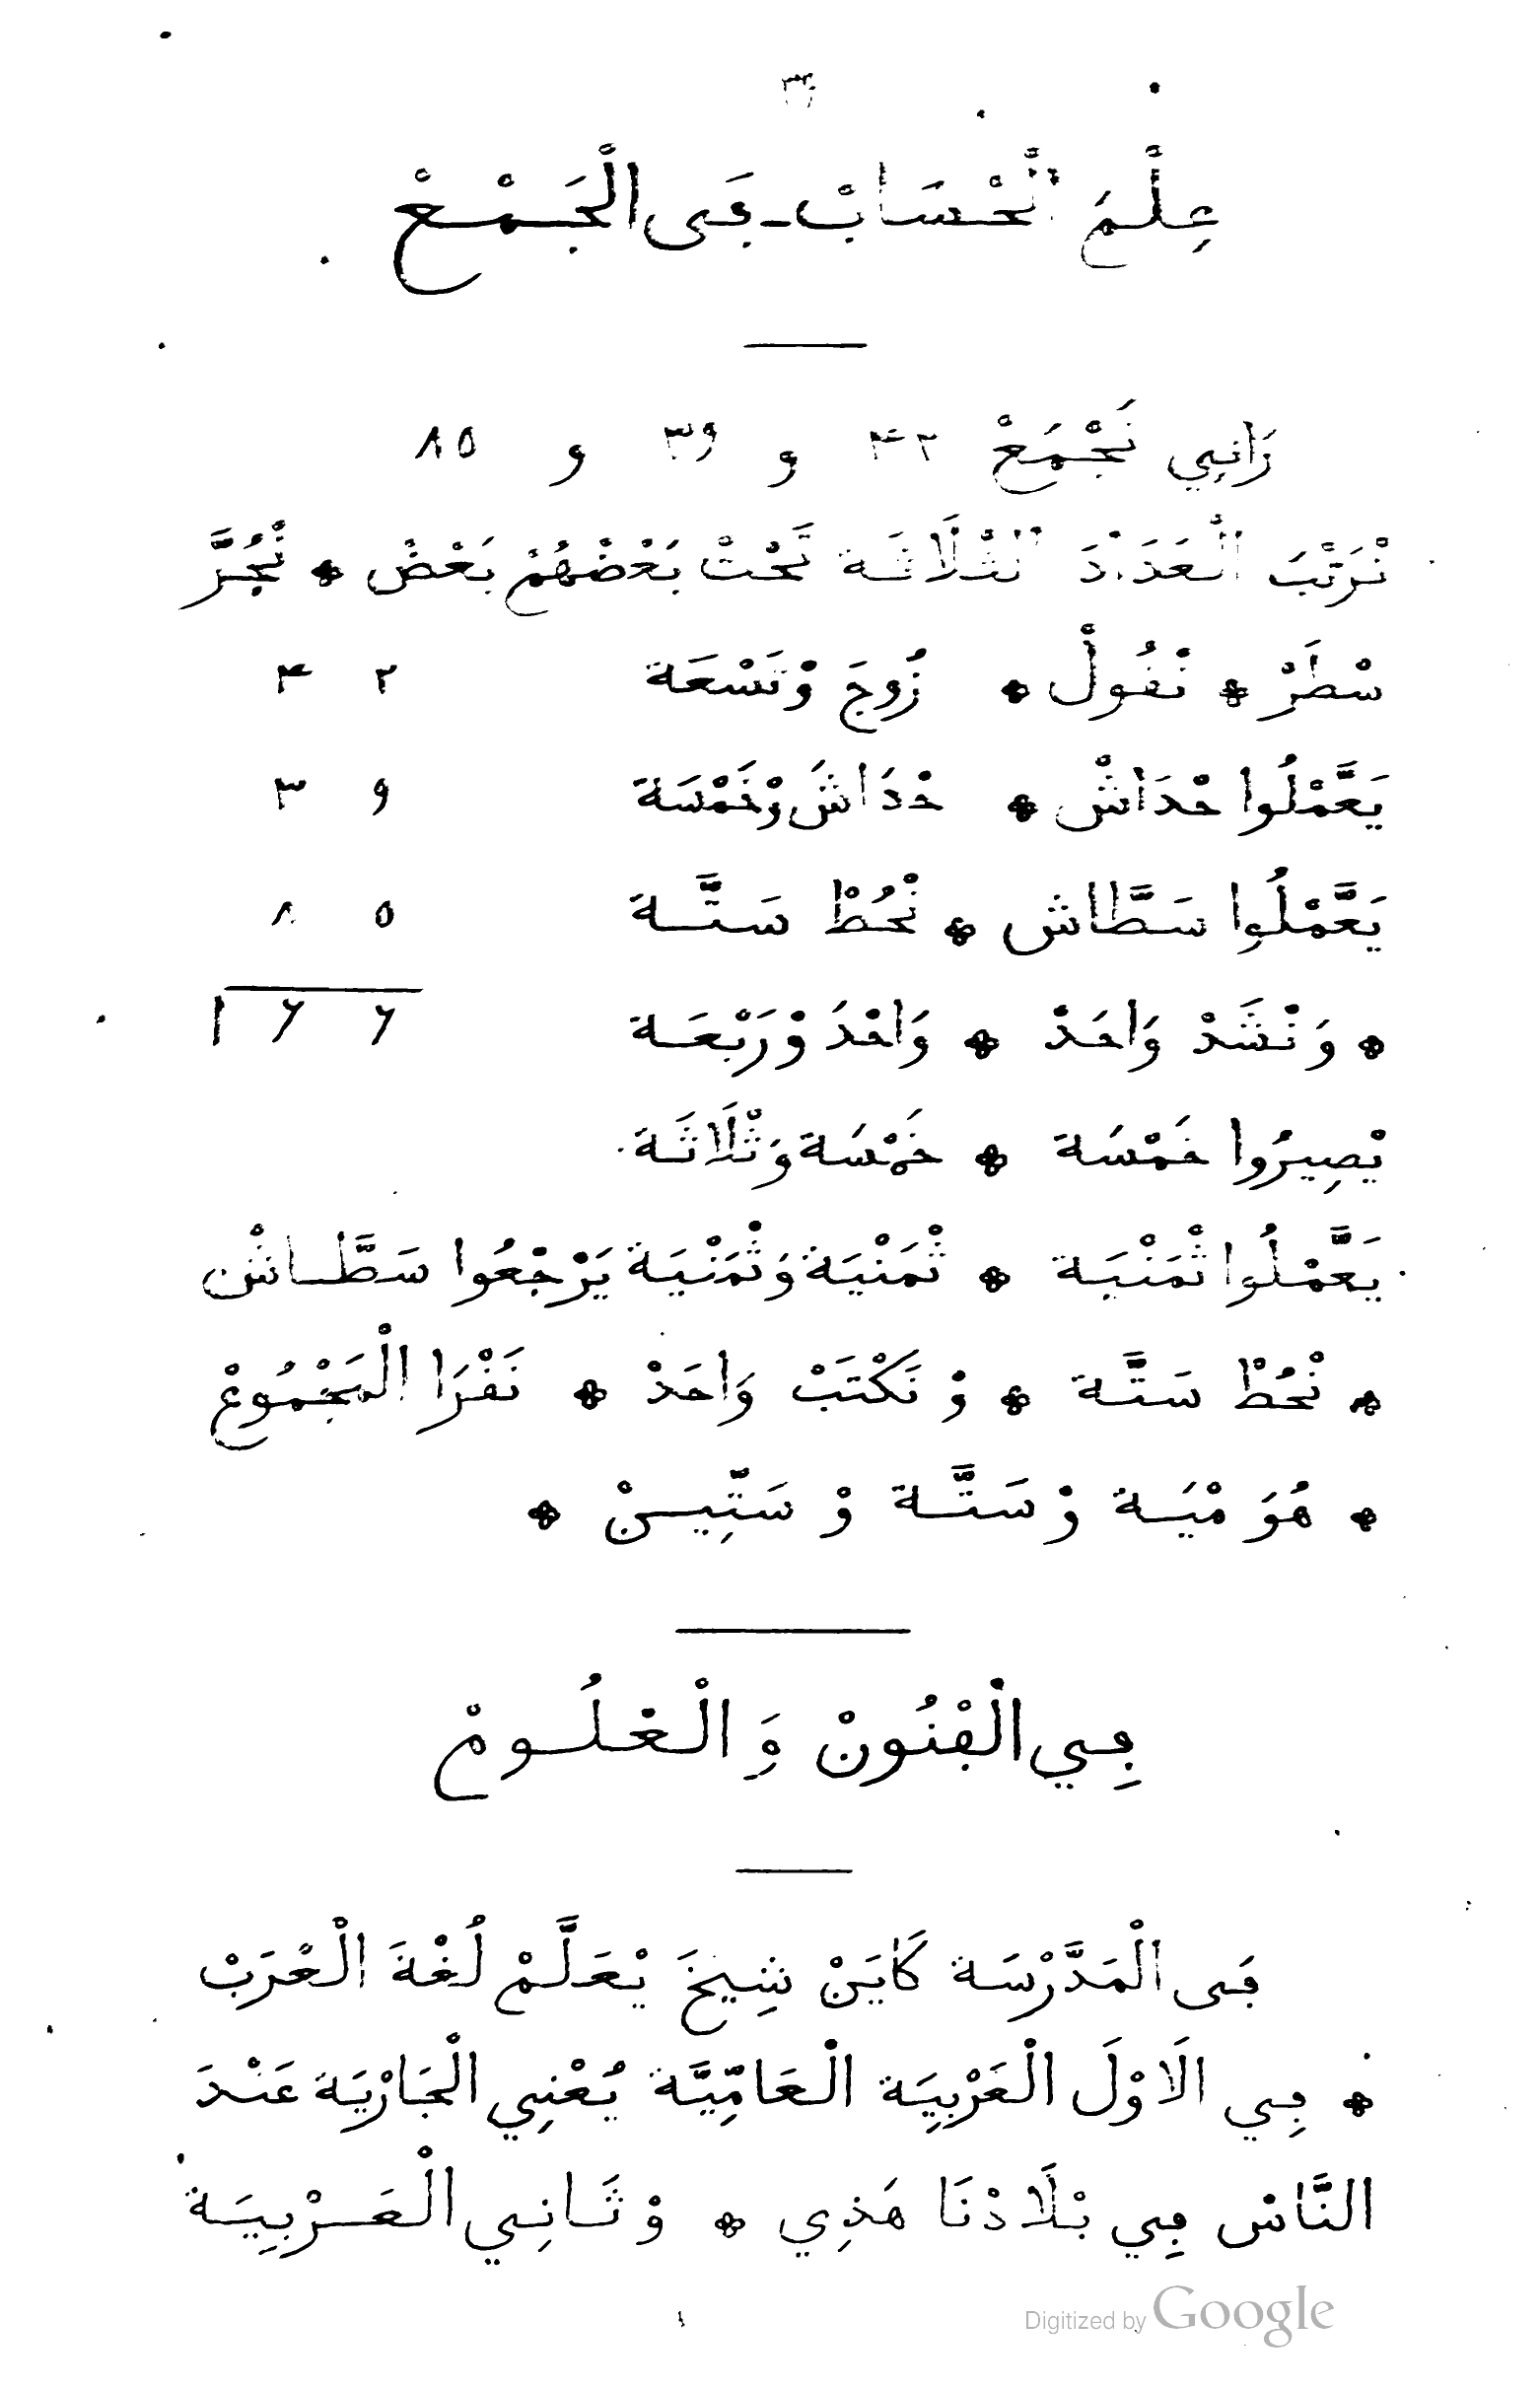 ٣٤
عِلْمَ الْحْسَابْ ڢَى الْجَمْعْ
رَانِي نَجْمَعْ ۴٢ و ٣٩ و ٨٥
نْرَتّْبَ الْعَدَادْ الثْلَاثَة تَحْتْ بَعْضْهُمْ بَعْضْ * نْجُرَّ
سْطَرْ * نْڧُولْ * زُوجَ وْتَسْعَة ۴ ٢
يَعَّمْلُوا حْدَاشْ * حْدَاشَ وْخَمْسَة ٣ ٩
يَعَّمْلُوا سَطَّاش * نْحُطْ سَتَّة ٨ ٥
* وَنْشَدْ وَاحَدْ * وَاحْدَ وْرَبْعَة ١ ٦ ٦
يْصِيرُوا خَمْسَة * خَمْسَة وَثْلَاثَة
يَعَّمْلُوا ثْمَنْيَة * ثْمَنْيَة وَثْمَنْيَة يَرْجْعُوا سَطَّاشْ
* نْحُطْ سَتَّة * وْ نَكْتَبْ وَاحَدْ * نَڧْرَا الْمَجْمُوعْ
* هُوَ مْيَة وْ سَتَّة وْ سَتِّينْ *
ڢِي الْڢْنُونْ وَ الْعْلُومْ
ڢَى الْمَدَّرْسَة كَايَنْ شِيخَ يْعَلَّمْ لُغْةَ الْعُرَبْ
* ڢِي الَاوْلَ الْعَرْبِيَة الْعَامِّيَّة يُعْنِي الْجَارْيَة عَنْدَ
النَّاسْ ڢِي بْلَادْنَا هَذِي * وْ ثَانِي الْعَرْبِيَة
١
Digitized by Google